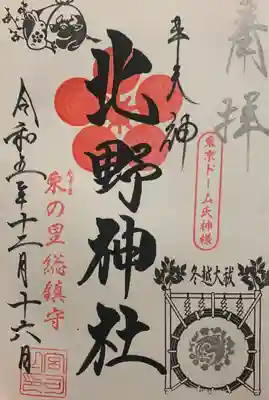 奉拝
東京ドーム氏神様
冬越大祓
牛天神
北野神社
東の里総鎮守
令和五年十二月十六月